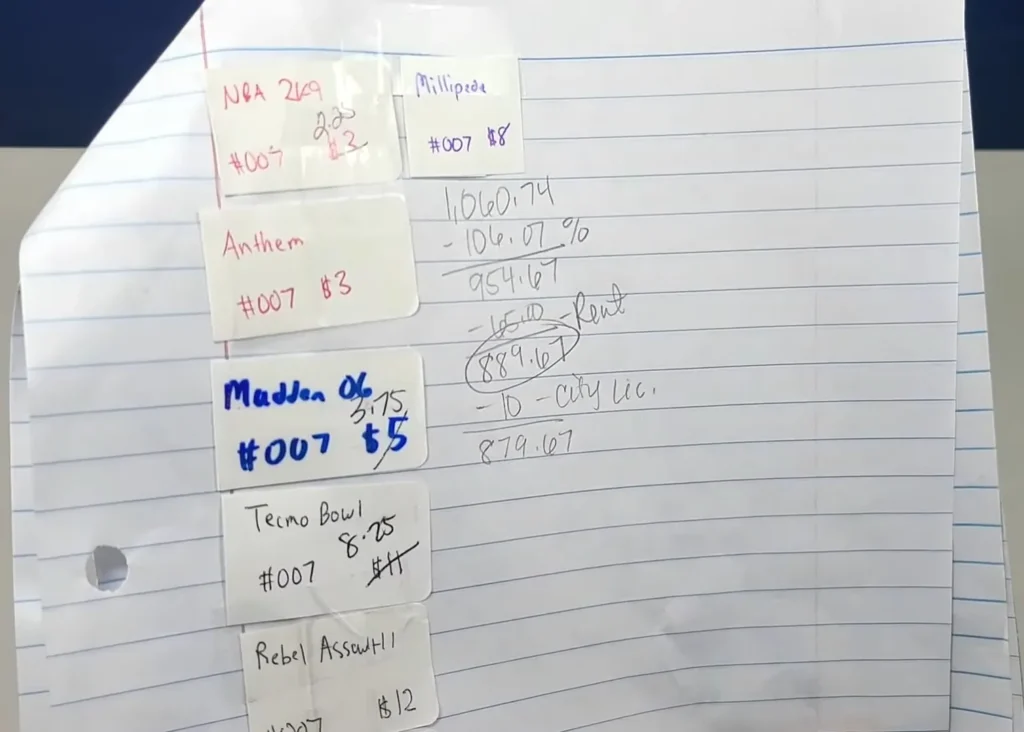 NBA 2K9
2.25
#007 $3
Millipede
#007 $8
Anthem
#007 $3
Madden 06
3.75
#007 $5
Tecmo Bowl
8.25
#007 $11
Rebel Assault II
#007 $12
1,060.74
- 106.07 %
954.67
- 65.00 - Rent
889.67
- 10 - City Lic.
879.67